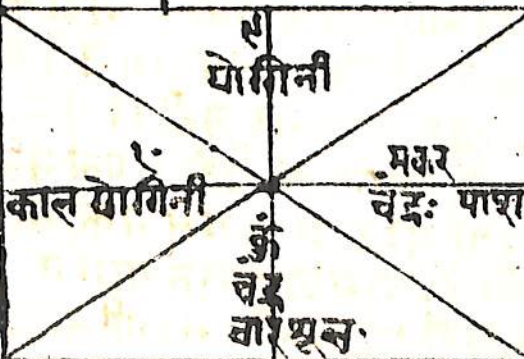 ९
योगिनी
१०
काल योगिनी
मकर
चंद्रः पाश
कुं
चंद्र
वारशूल.